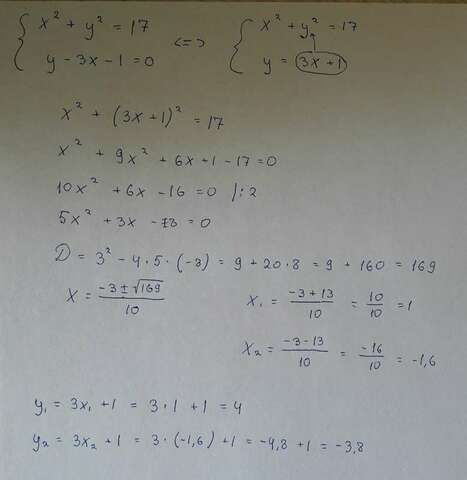 { x² + y² = 17 <=> { x² + y² = 17
{ y - 3x - 1 = 0 { y = 3x + 1
x² + (3x + 1)² = 17
x² + 9x² + 6x + 1 - 17 = 0
10x² + 6x - 16 = 0 /:2
5x² + 3x - 8 = 0
D = 3² - 4 · 5 · (-8) = 9 + 20 · 8 = 9 + 160 = 169
x = (-3 ± √169)/10 x₁ = (-3 + 13)/10 = 10/10 = 1
x₂ = (-3 - 13)/10 = -16/10 = -1,6
y₁ = 3x₁ + 1 = 3 · 1 + 1 = 4
y₂ = 3x₂ + 1 = 3 · (-1,6) + 1 = -4,8 + 1 = -3,8